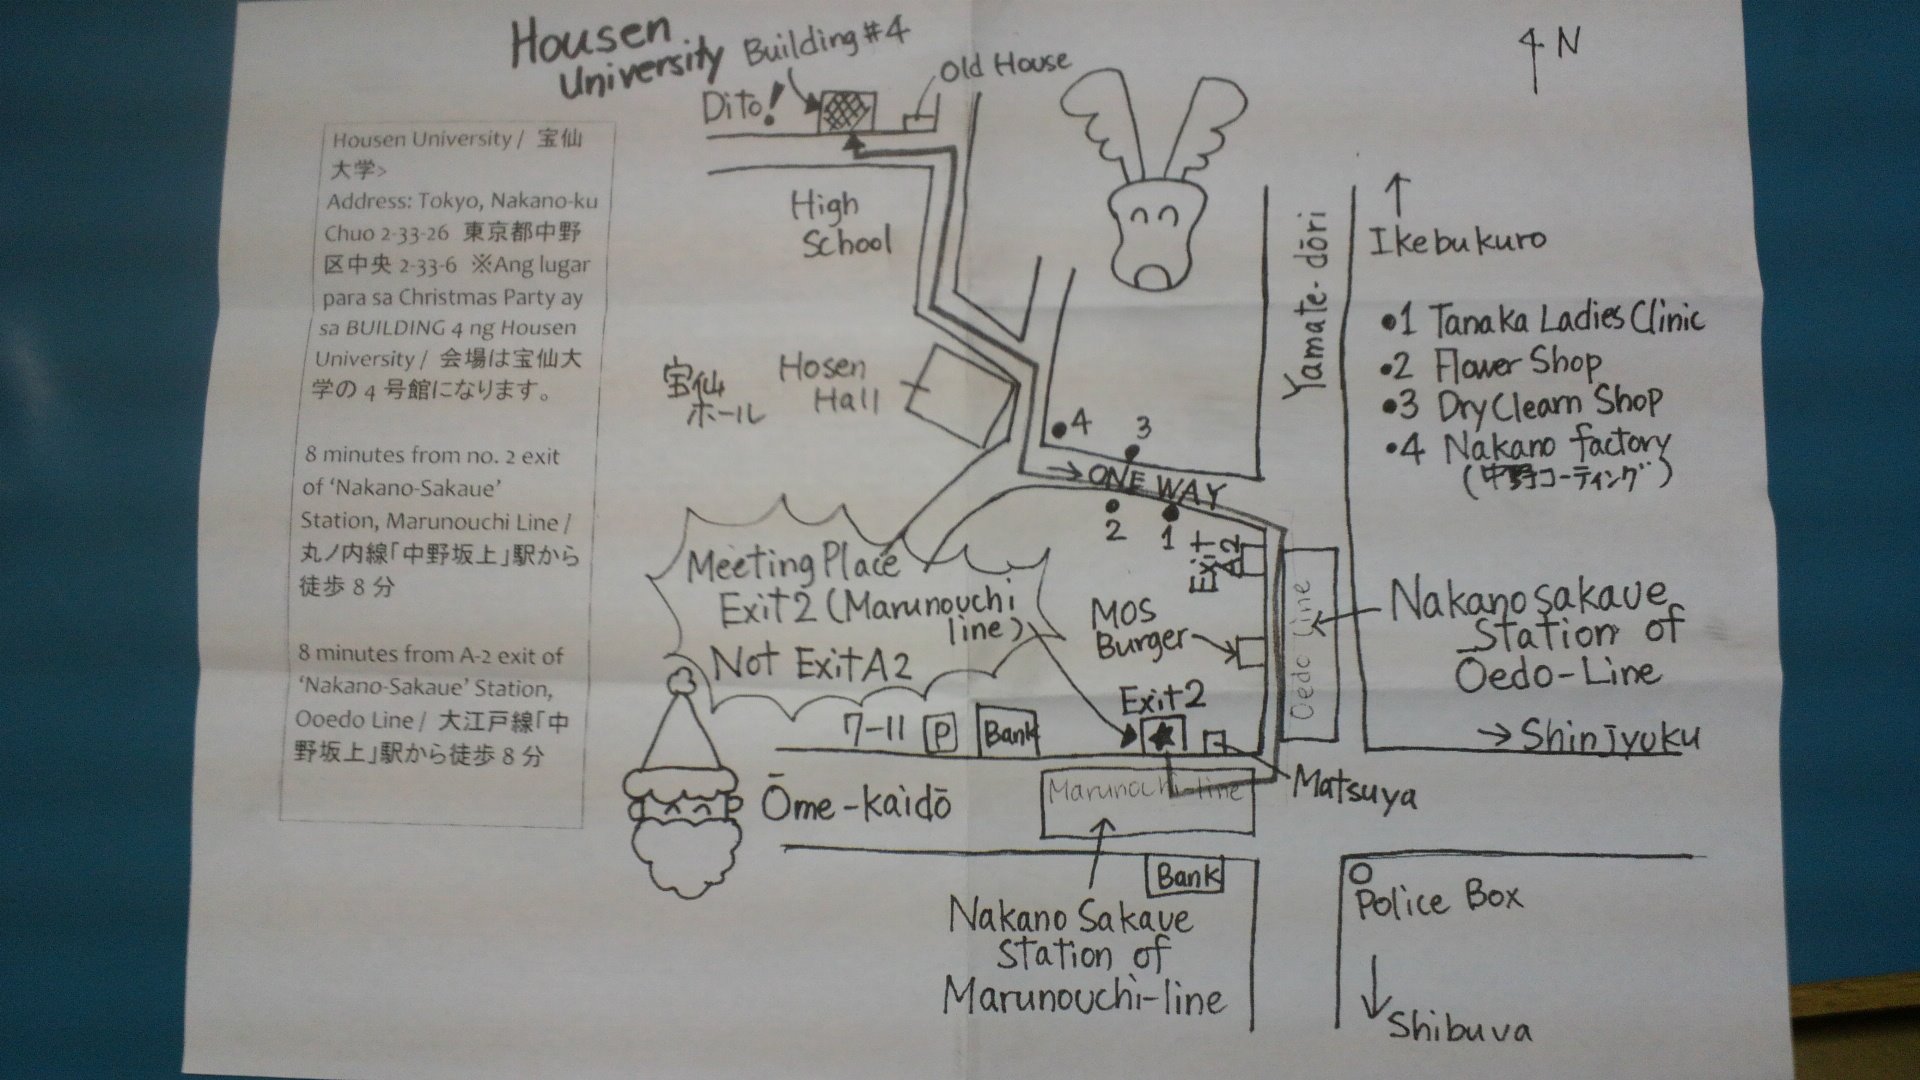 Housen
University Building #4
Dito!
Old House
4 N
Housen University / 宝仙
大学>
Address: Tokyo, Nakano-ku
Chuo 2-33-26 東京都中野
区中央 2-33-6 ※Ang lugar
para sa Christmas Party ay
sa BUILDING 4 ng Housen
University / 会場は宝仙大
学の 4 号館になります。
8 minutes from no. 2 exit
of ‘Nakano-Sakaue’
Station, Marunouchi Line /
丸ノ内線「中野坂上」駅から
徒歩 8 分
8 minutes from A-2 exit of
‘Nakano-Sakaue’ Station,
Ooedo Line / 大江戸線「中
野坂上」駅から徒歩 8 分
High
School
Yamate-dōri
Ikebukuro
•1 Tanaka Ladies Clinic
•2 Flower Shop
•3 Dry Clearn Shop
•4 Nakano factory
(中野コーティング)
宝仙
ホール
Hosen
Hall
4
3
→ ONE WAY
2
1
Exit
A2
Meeting Place
Exit 2 (Marunouchi
line)
Not Exit A2
MOS
Burger
Oedo line
Nakanosakaue
Station of
Oedo-Line
7-11
P
Bank
Exit 2
→ Shinjyuku
Ōme-kaidō
Marunochi-line
Matsuya
Bank
Police Box
Nakano Sakaue
Station of
Marunouchi-line
Shibuya